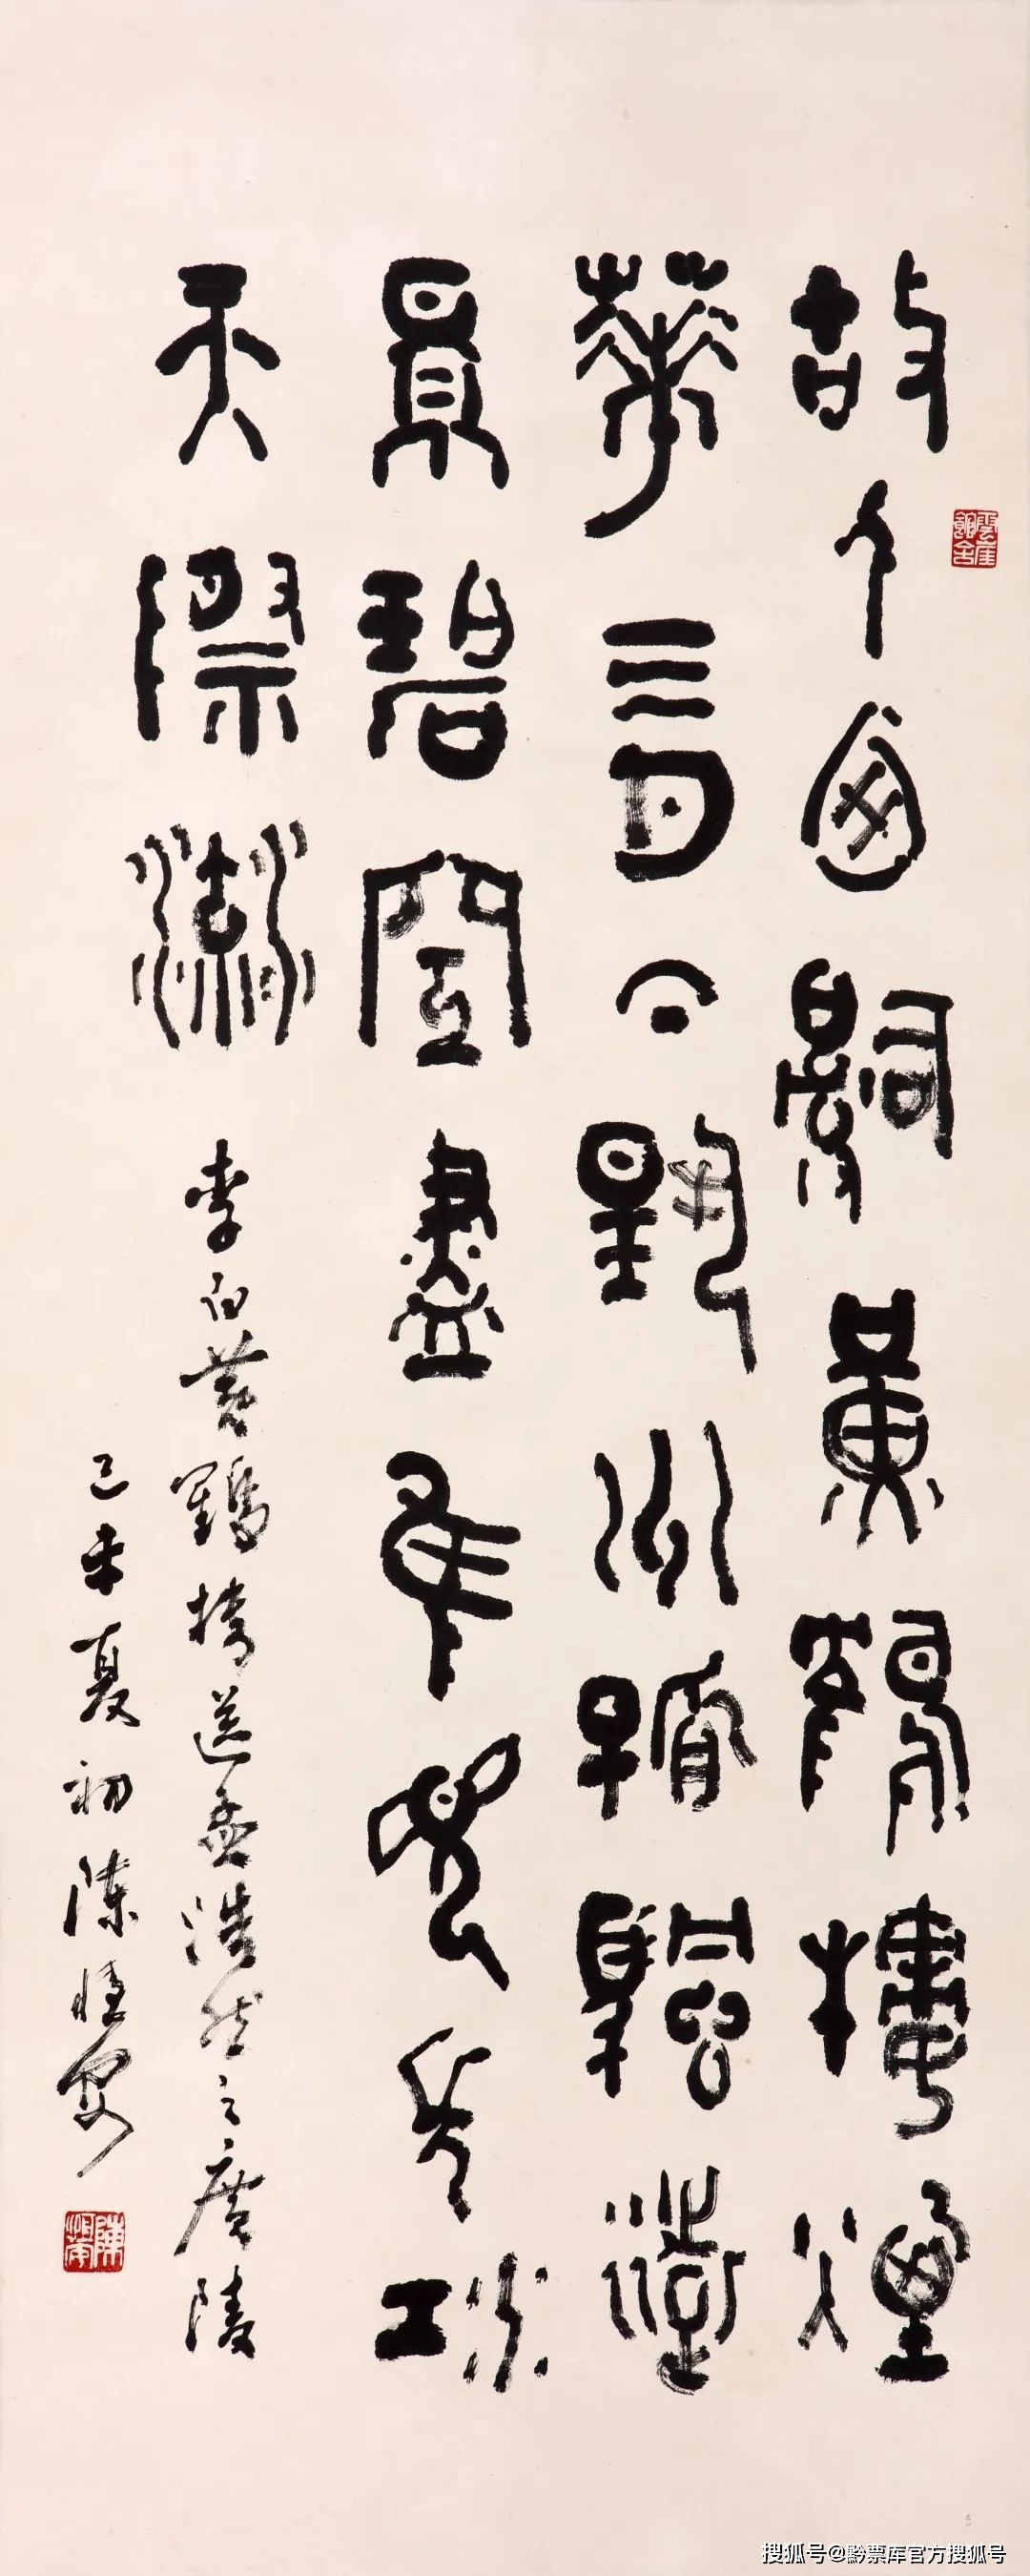 故人西辭黃鶴樓煙
華三月下揚州孤帆遠
景碧空盡隹見長江
天際流
李白黃鶴樓送孟浩然之廣陵
己未夏初陳恒安
陳恒安
搜狐号@黔票库官方搜狐号